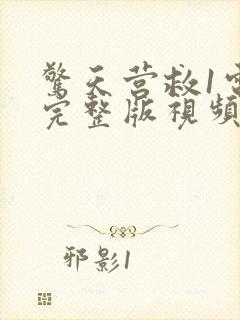 驚天营救1電
完整版視頻
邪影1